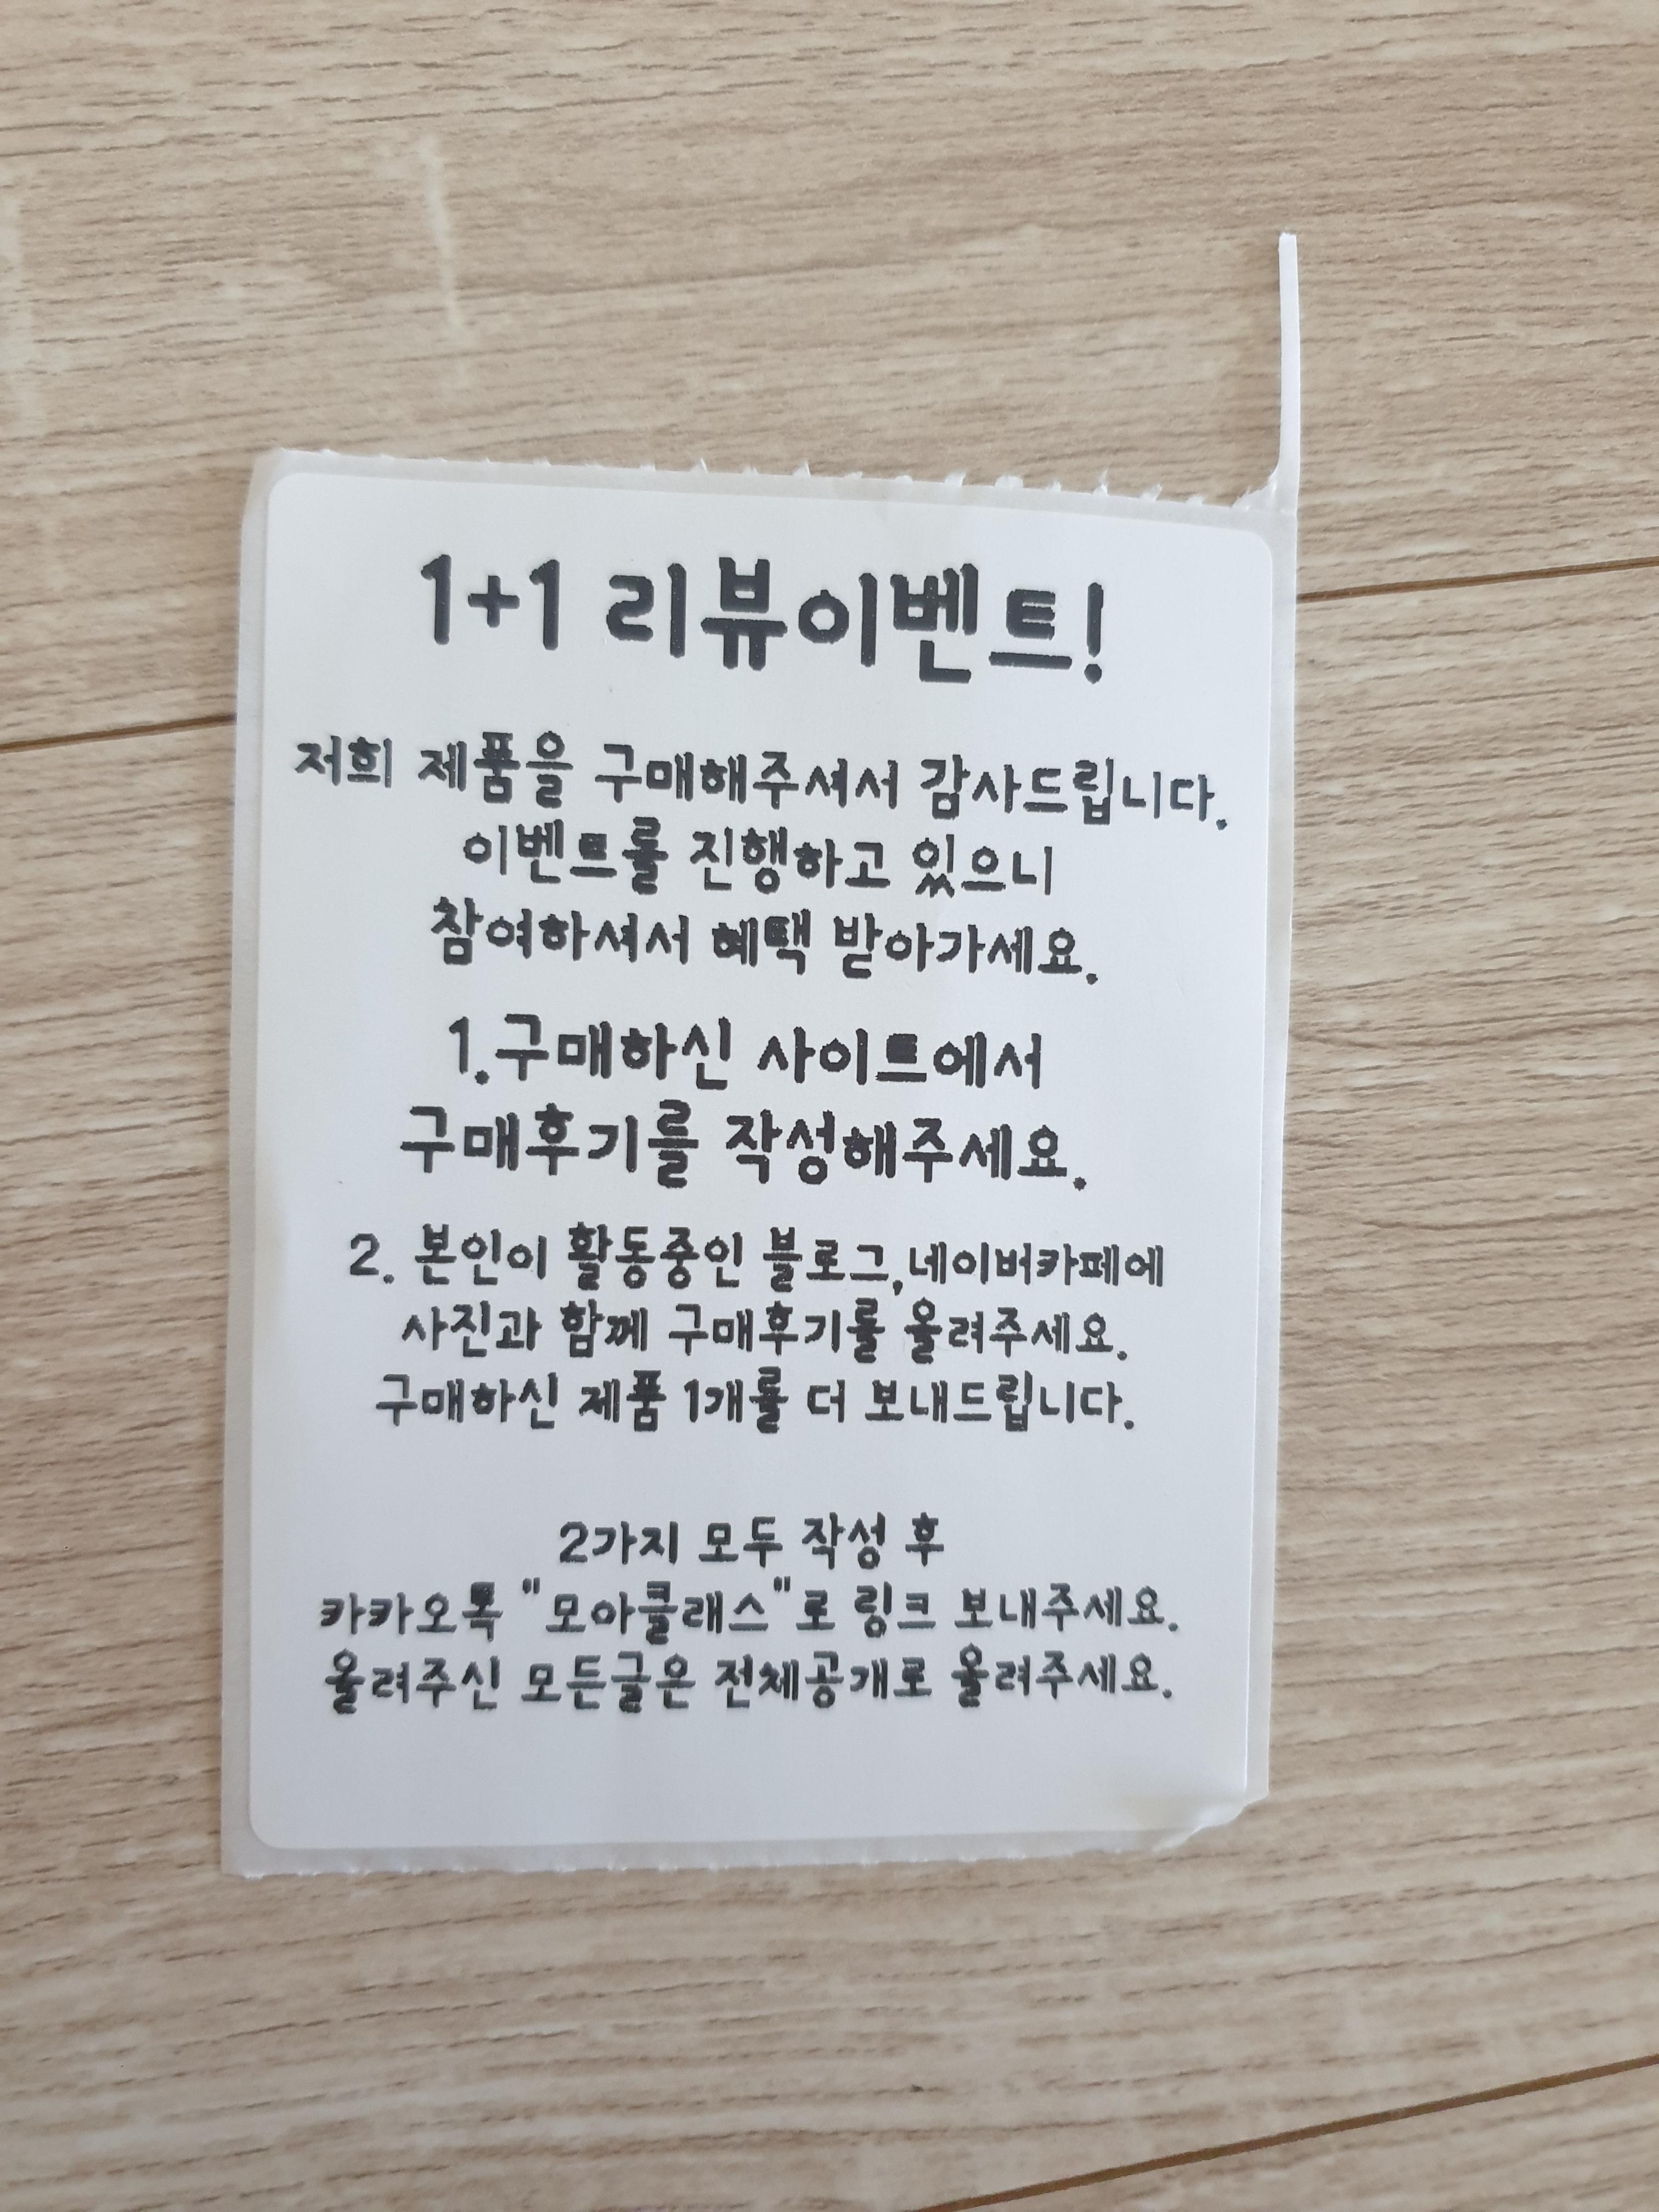 1+1 리뷰이벤트!
저희 제품을 구매해주셔서 감사드립니다.
이벤트를 진행하고 있으니
참여하셔서 혜택 받아가세요.
1.구매하신 사이트에서
구매후기를 작성해주세요.
2. 본인이 활동중인 블로그,네이버카페에
사진과 함께 구매후기를 올려주세요.
구매하신 제품 1개를 더 보내드립니다.
2가지 모두 작성 후
카카오톡 "모아클래스"로 링크 보내주세요.
올려주신 모든글은 전체공개로 올려주세요.